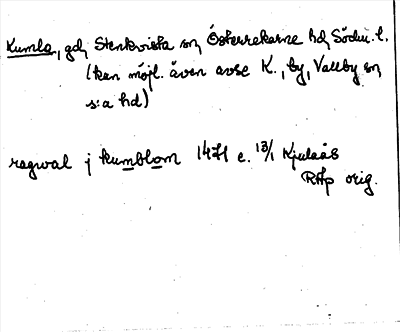 Kumla, gd, Stenkvista sn, Österrekarne hd, Södm. l.
(kan möjl. även avse K., by, Vallby sn
s:a hd)
ragwal j kumblom 1471 e. 13/1 Kjulaås
RAp orig.